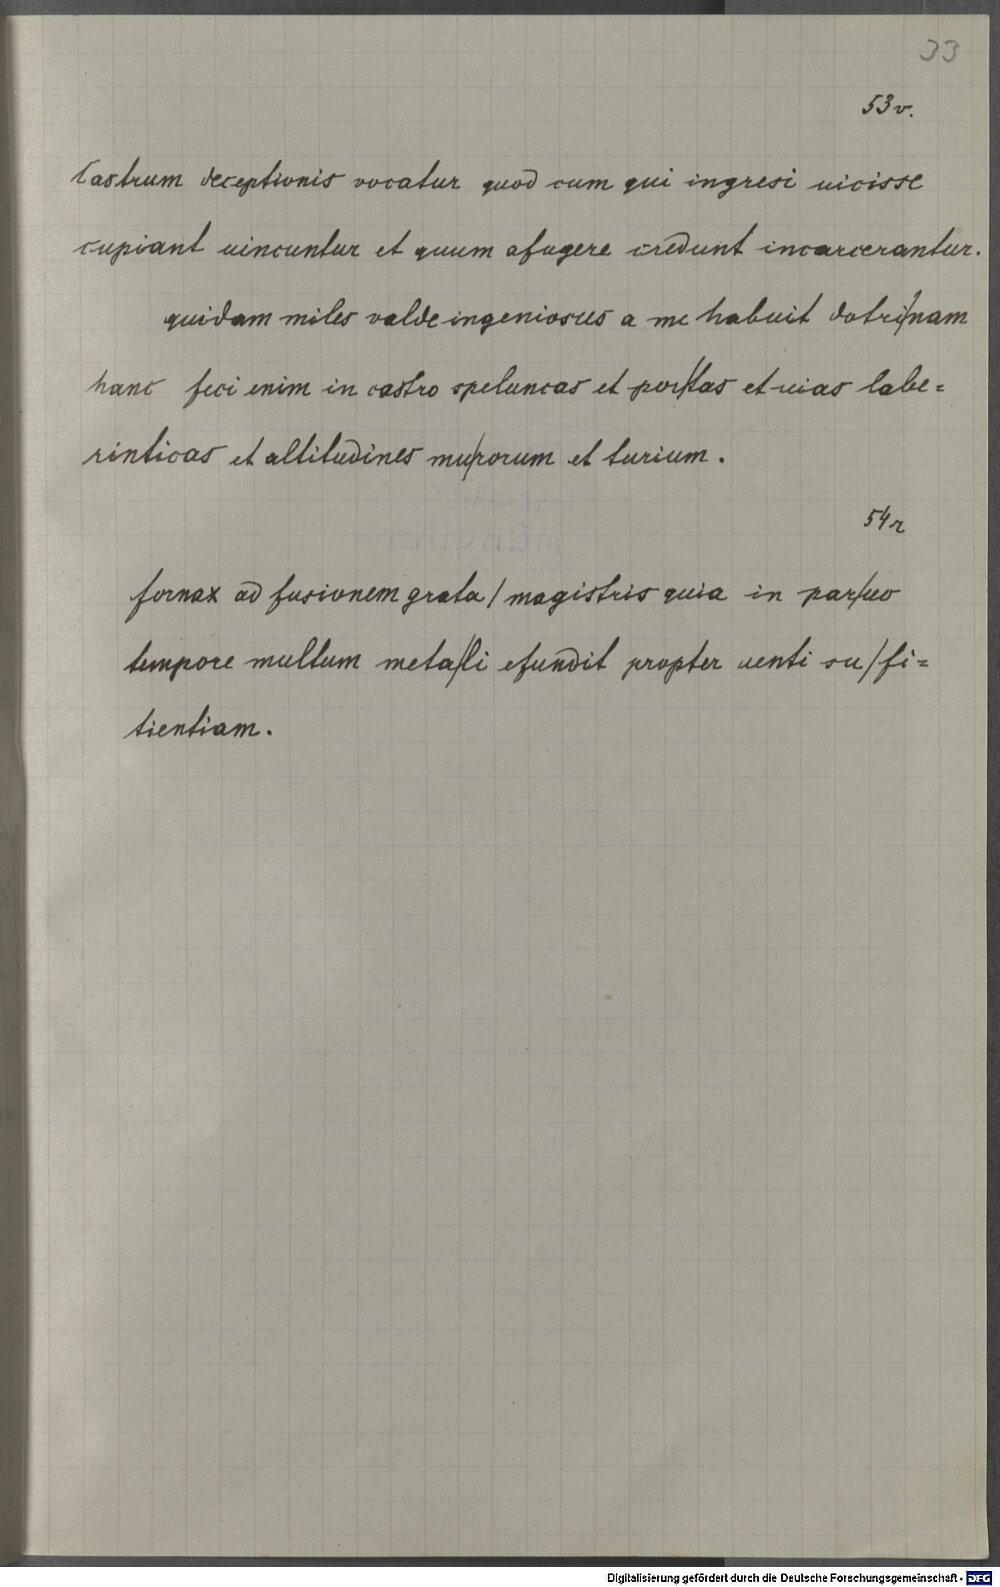 33
53v.
Castrum deceptionis vocatur quod cum qui ingresi uicisse
cupiant uincuntur et quum afugere credunt incarcerantur.
quidam miles valde ingeniosus a me habuit dotri/nam
hanc feci enim in castro speluncas et por/tas et uias labe=
rinticas et altitudines mu/rorum et turium.
54r
fornax ad fusionem grata / magistris quia in par/uo
tempore multum meta/li efundit propter uenti su/fi=
tientiam.
Digitalisierung gefördert durch die Deutsche Forschungsgemeinschaft - DFG